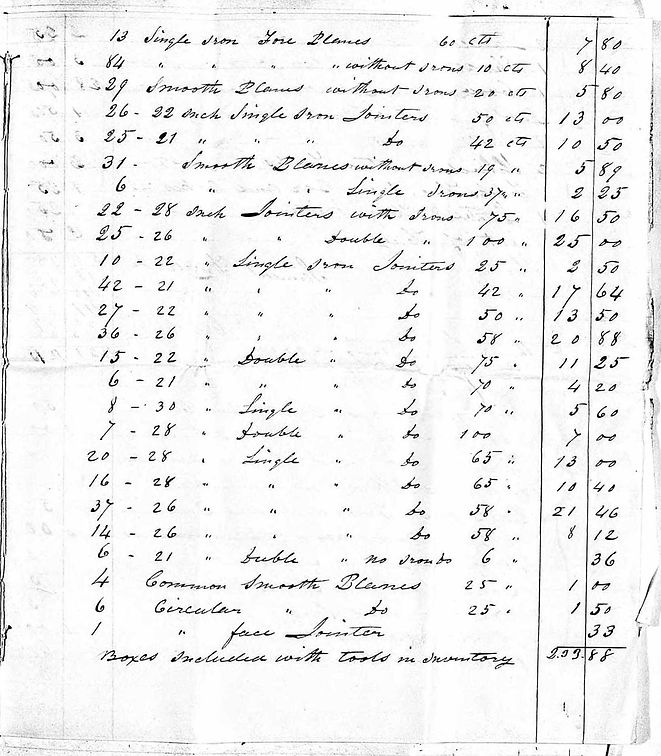 13 Single Iron Fore Planes 60 cts 7 80
84 " " " " without Irons 10 cts 8 40
29 Smooth Planes without Irons 20 cts 5 80
26 - 22 Inch Single Iron Jointers 50 cts 13 00
25 - 21 " " " Do 42 cts 10 50
31 - Smooth Planes without Irons 19 " 5 89
6 " " Single Irons 37 " 2 25
22 - 28 Inch Jointers with Irons 75 " 16 50
25 - 26 " " Double " 100 " 25 00
10 - 22 " Single Iron Jointers 25 " 2 50
42 - 21 " " " Do 42 " 17 64
27 - 22 " " " Do 50 " 13 50
36 - 26 " " " Do 58 " 20 88
15 - 22 " Double " Do 75 " 11 25
6 - 21 " " " Do 70 " 4 20
8 - 30 " Single " Do 70 " 5 60
7 - 28 " Double " Do 100 7 00
20 - 28 " Single " Do 65 " 13 00
16 - 28 " " " Do 65 " 10 40
37 - 26 " " " Do 58 " 21 46
14 - 26 " " " Do 58 " 8 12
6 - 21 " Duble " no Irons 6 " 36
4 Common Smooth Planes 25 " 1 00
6 Circular " Do 25 " 1 50
1 " face Jointer 33
Boxes Included with tools in Inventory 233.88